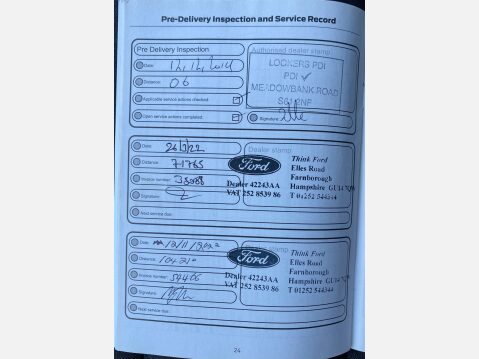 Pre-Delivery Inspection and Service Record
Pre Delivery Inspection
Authorised dealer stamp
Date:
LOOKERS PDI
PDI ✓
Distance: 06
MEADOWBANK ROAD
Applicable service actions checked:
Open service actions completed:
Signature:
Date: 26/3/22
Dealer stamp
Distance: 71785
Invoice number:
Signature:
Next service due:
Ford
Think Ford
Elles Road
Farnborough
Dealer 42243AA
Hampshire GU14
VAT 252 8539 86
T 01252 544344
Date:
Dealer stamp
Distance:
Invoice number:
Signature:
Next service due:
Ford
Think Ford
Elles Road
Farnborough
Dealer 42243AA
Hampshire GU14
VAT 252 8539 86
T 01252 544344
24